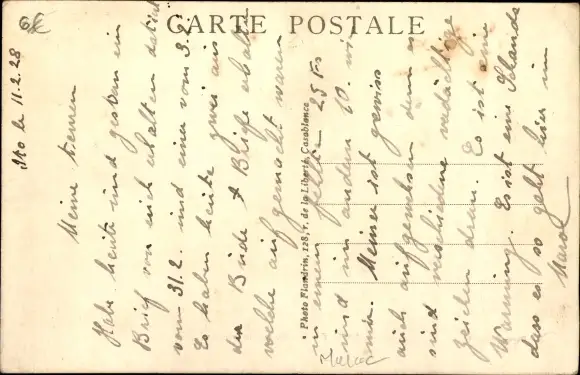 CARTE POSTALE
Ito le 11.2.28
Meine lieben
Habe heute und gestern ein
Brief von euch erhalten datiert
vom 31.2. und einer vom 3.2
Es haben heute zwei aus
der Bude Briefe erhalten
welche aufgemacht waren
in einem fehlten 25 Frs
und im andern 10. wi
mir. Meiner ist gewiss
auch aufgewesen denn es
sind verschiedene verdächtige
zeichen dran. Es ist eine
Warnung. Es ist eine Schande
dass es so geht hier im
Maroc
Photo Flandrin, 128, r. de la Liberté, Casablanca
Maroc